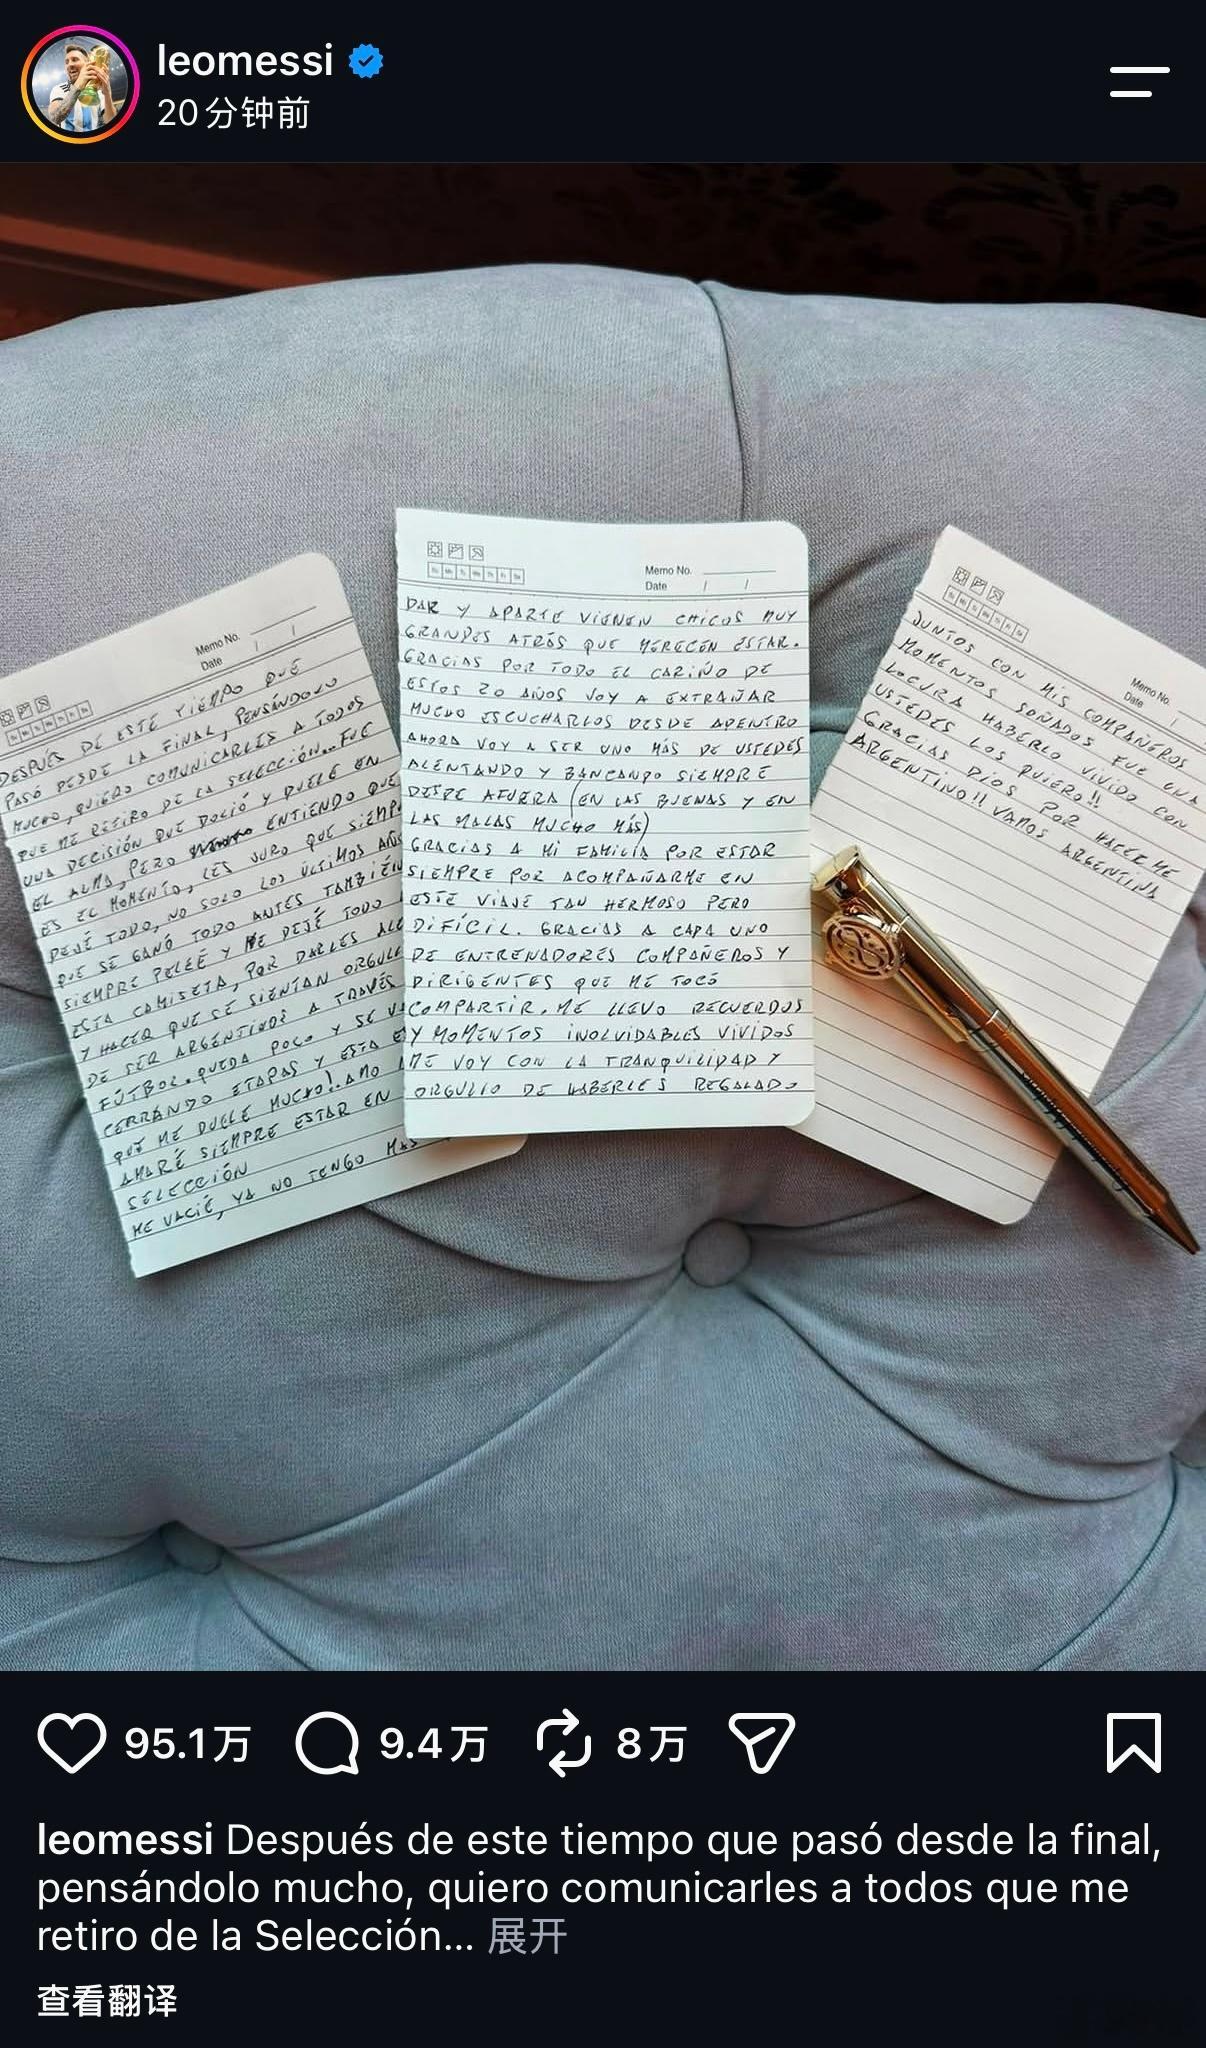 leomessi
20分钟前
Memo No.
Date / /
DESPUÉS DE ESTE TIEMPO QUE
PASÓ DESDE LA FINAL, PENSÁNDOLO
MUCHO, QUIERO COMUNICARLES A TODOS
QUE ME RETIRO DE LA SELECCIÓN... FUE
UNA DECISIÓN QUE DOLIÓ Y DUELE EN
EL ALMA, PERO ENTIENDO QUE
ES EL MOMENTO, LES JURO QUE SIEMP
DEJÉ TODO, NO SOLO LOS ÚLTIMOS AÑOS
QUE SE GANÓ TODO ANTES TAMBIÉN
SIEMPRE PELEÉ Y ME DEJÉ TODO
ESTA CAMISETA, POR DARLES ALE
Y HACER QUE SE SIENTAN ORGULL
DE SER ARGENTINOS A TRAVÉS
FÚTBOL. QUEDA POCO Y SE VA
CERRANDO ETAPAS Y ESTA E
QUE ME DUELE MUCHO! AMO
AMARÉ SIEMPRE ESTAR EN
SELECCIÓN
ME VACIÉ, YA NO TENGO MAS
Memo No.
Date / /
DAR Y APARTE VIENEN CHICOS MUY
GRANDES ATRÁS QUE MERECEN ESTAR.
GRACIAS POR TODO EL CARIÑO DE
ESTOS 20 AÑOS VOY A EXTRAÑAR
MUCHO ESCUCHARLOS DESDE ADENTRO
AHORA VOY A SER UNO MÁS DE USTEDES
ALENTANDO Y BANCANDO SIEMPRE
DESDE AFUERA (EN LAS BUENAS Y EN
LAS MALAS MUCHO MÁS)
GRACIAS A MI FAMILIA POR ESTAR
SIEMPRE POR ACOMPAÑARME EN
ESTE VIAJE TAN HERMOSO PERO
DIFÍCIL. GRACIAS A CADA UNO
DE ENTRENADORES COMPAÑEROS Y
DIRIGENTES QUE ME TOCÓ
COMPARTIR. ME LLEVO RECUERDOS
Y MOMENTOS INOLVIDABLES VIVIDOS
ME VOY CON LA TRANQUILIDAD Y
ORGULLO DE HABERLES REGALADO
Memo No.
Date /
JUNTOS CON MIS COMPAÑEROS
MOMENTOS SOÑADOS FUE UNA
LOCURA HABERLO VIVIDO CON
USTEDES LOS QUIERO!!
GRACIAS DIOS POR HACERME
ARGENTINO!! VAMOS
ARGENTINA
95.1万 9.4万 8万
leomessi Después de este tiempo que pasó desde la final,
pensándolo mucho, quiero comunicarles a todos que me
retiro de la Selección... 展开
查看翻译